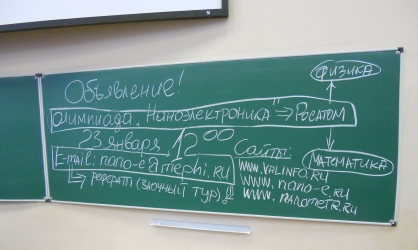 Объявление!
Олимпиада "Наноэлектроника" ⇒ Росатом
ФИЗИКА
МАТЕМАТИКА
23 января, 12 00
E-mail: nano-e@mephi.ru
↳ реферат (заочный тур)!
Сайты:
www.nano-e.ru
www.nanometr.ru